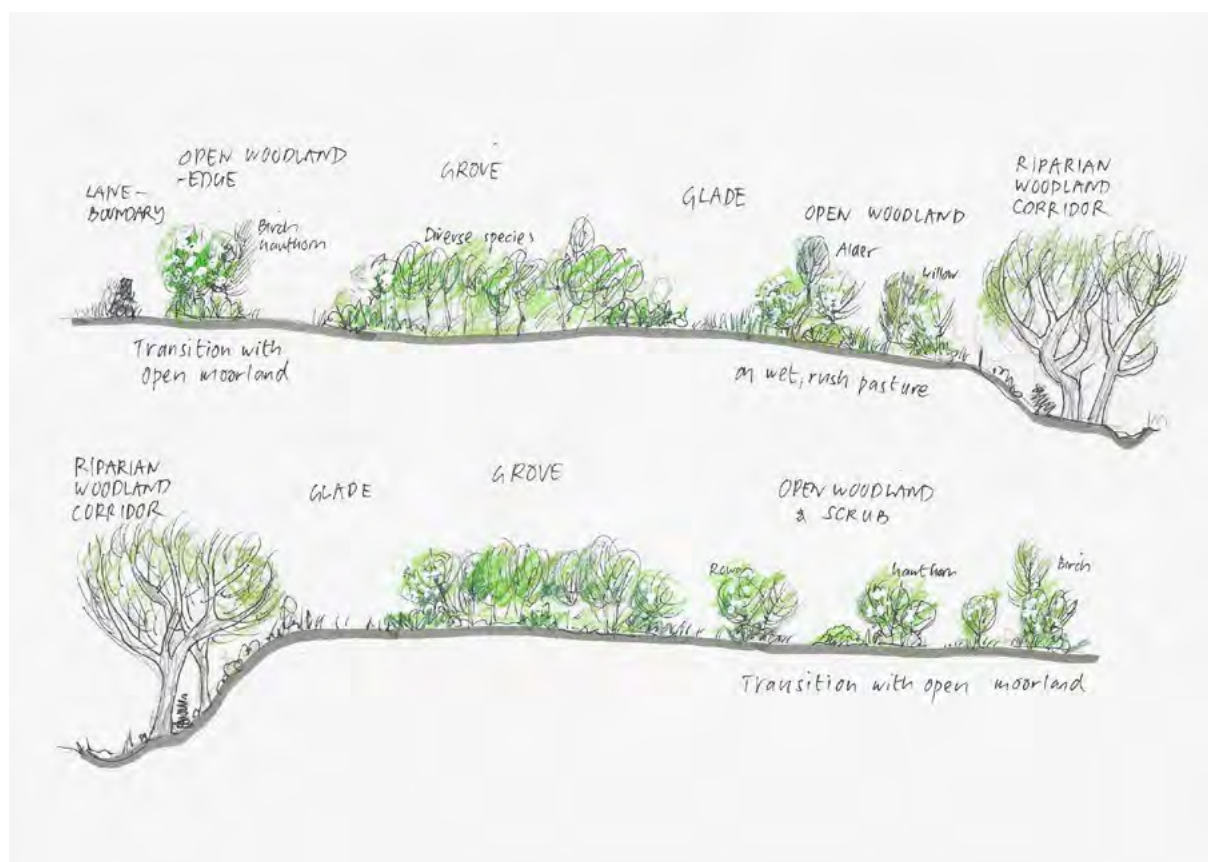 LANE-
BOUNDARY
OPEN WOODLAND
-EDGE
Birch
hawthorn
GROVE
Diverse species
GLADE
OPEN WOODLAND
Alder
Willow
RIPARIAN
WOODLAND
CORRIDOR
Transition with
Open moorland
on wet, rush pasture
RIPARIAN
WOODLAND
CORRIDOR
GLADE
GROVE
OPEN WOODLAND
& SCRUB
Rowan
hawthorn
Birch
Transition with open moorland